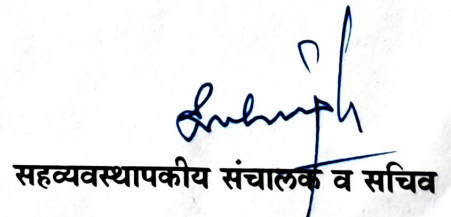 सहव्यवस्थापकीय संचालक व सचिव